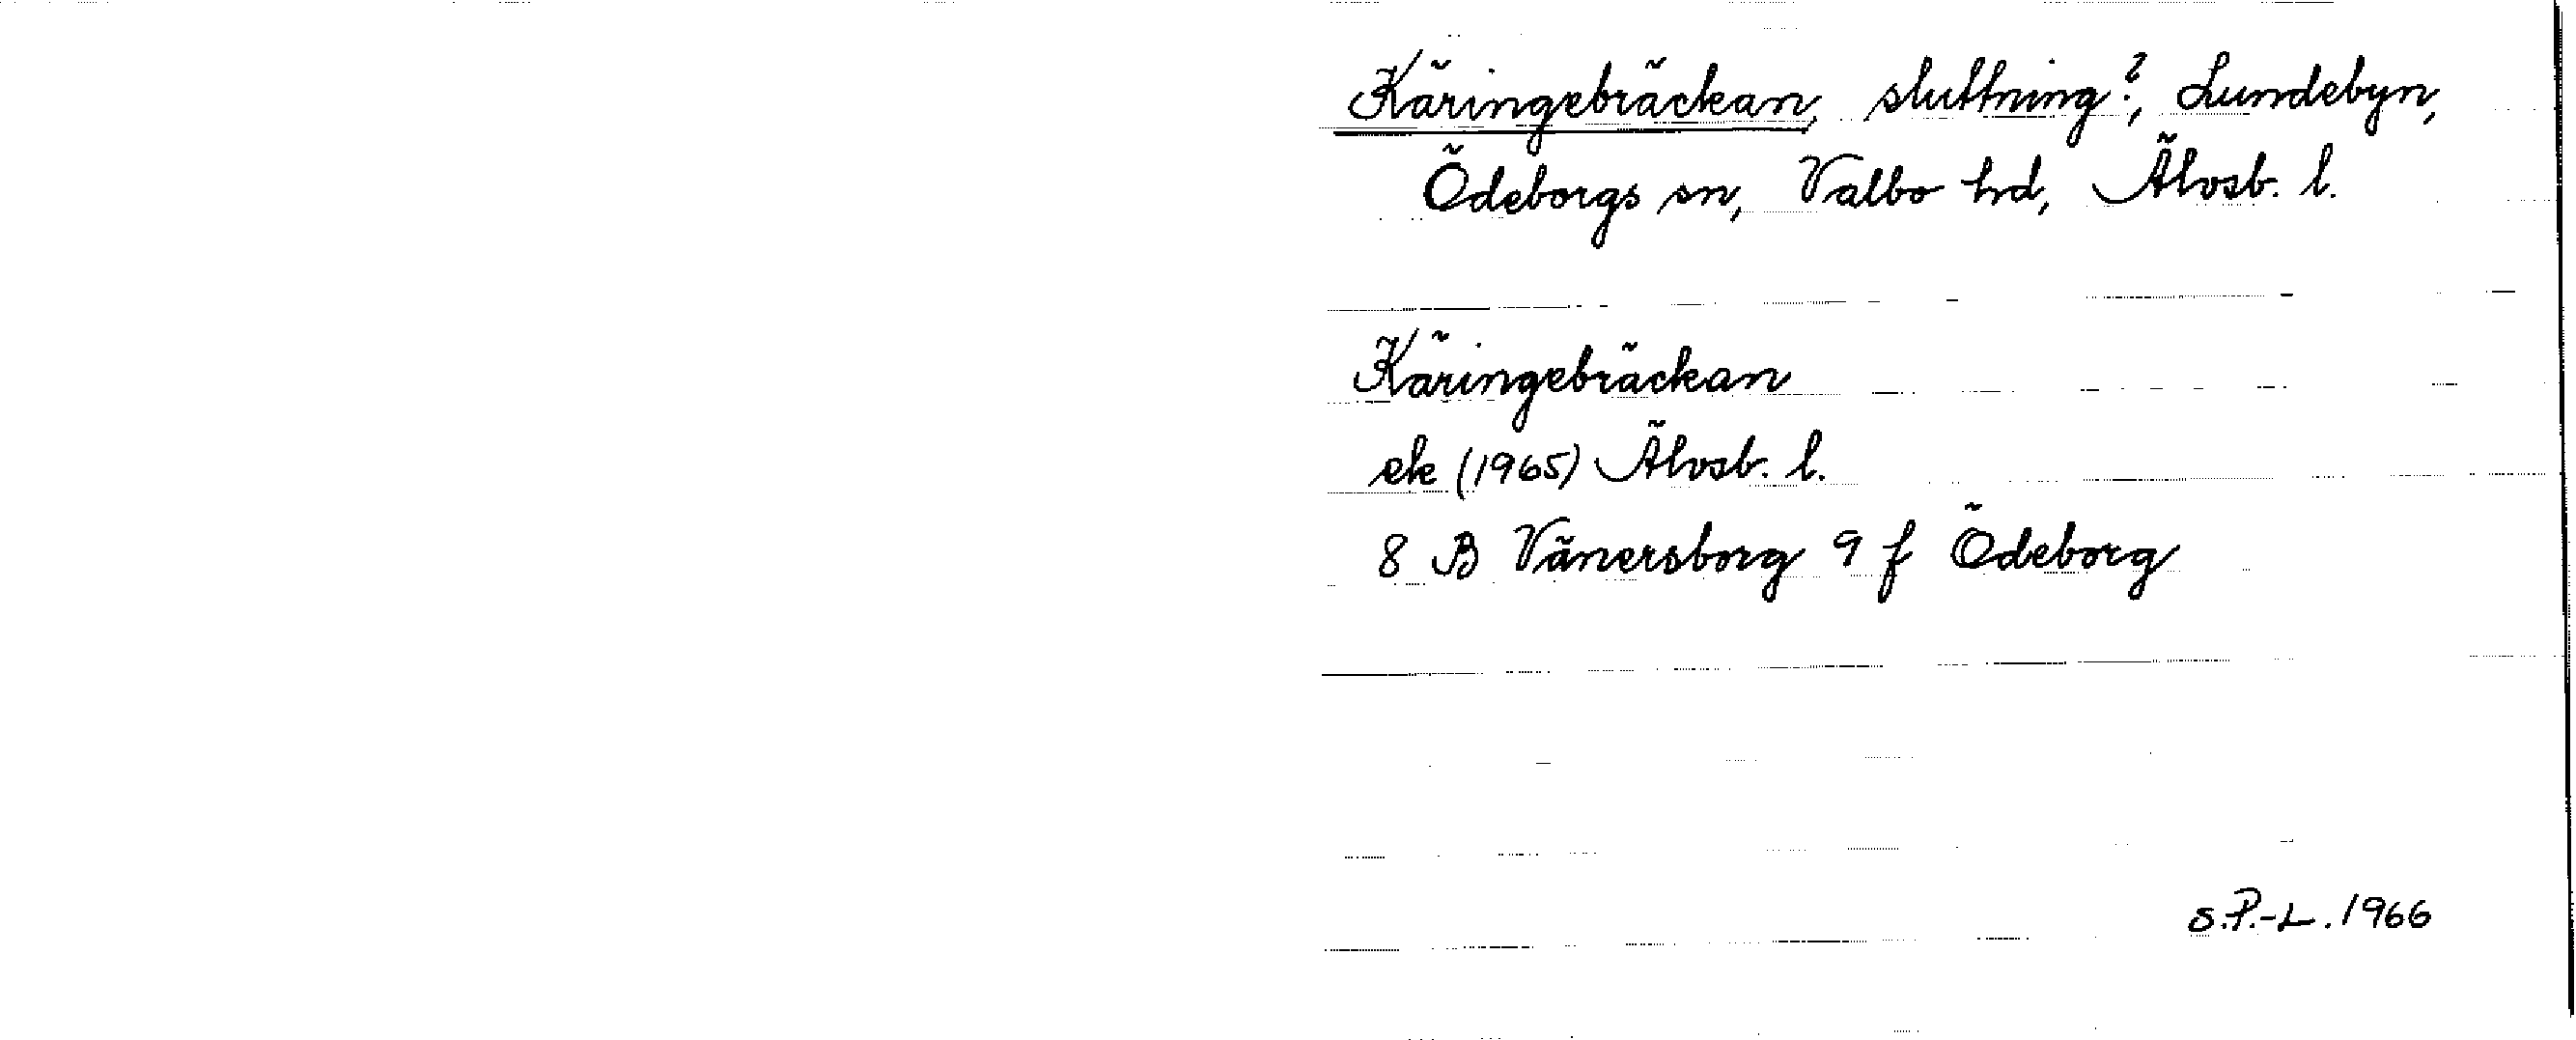 Käringebräckan, sluttning?, Lundebyn,
Ödeborgs sn, Valbo hd, Älvsb. l.
Käringebräckan
ek (1965) Älvsb. l.
8 B Vänersborg 9 f Ödeborg
S.P.-L. 1966